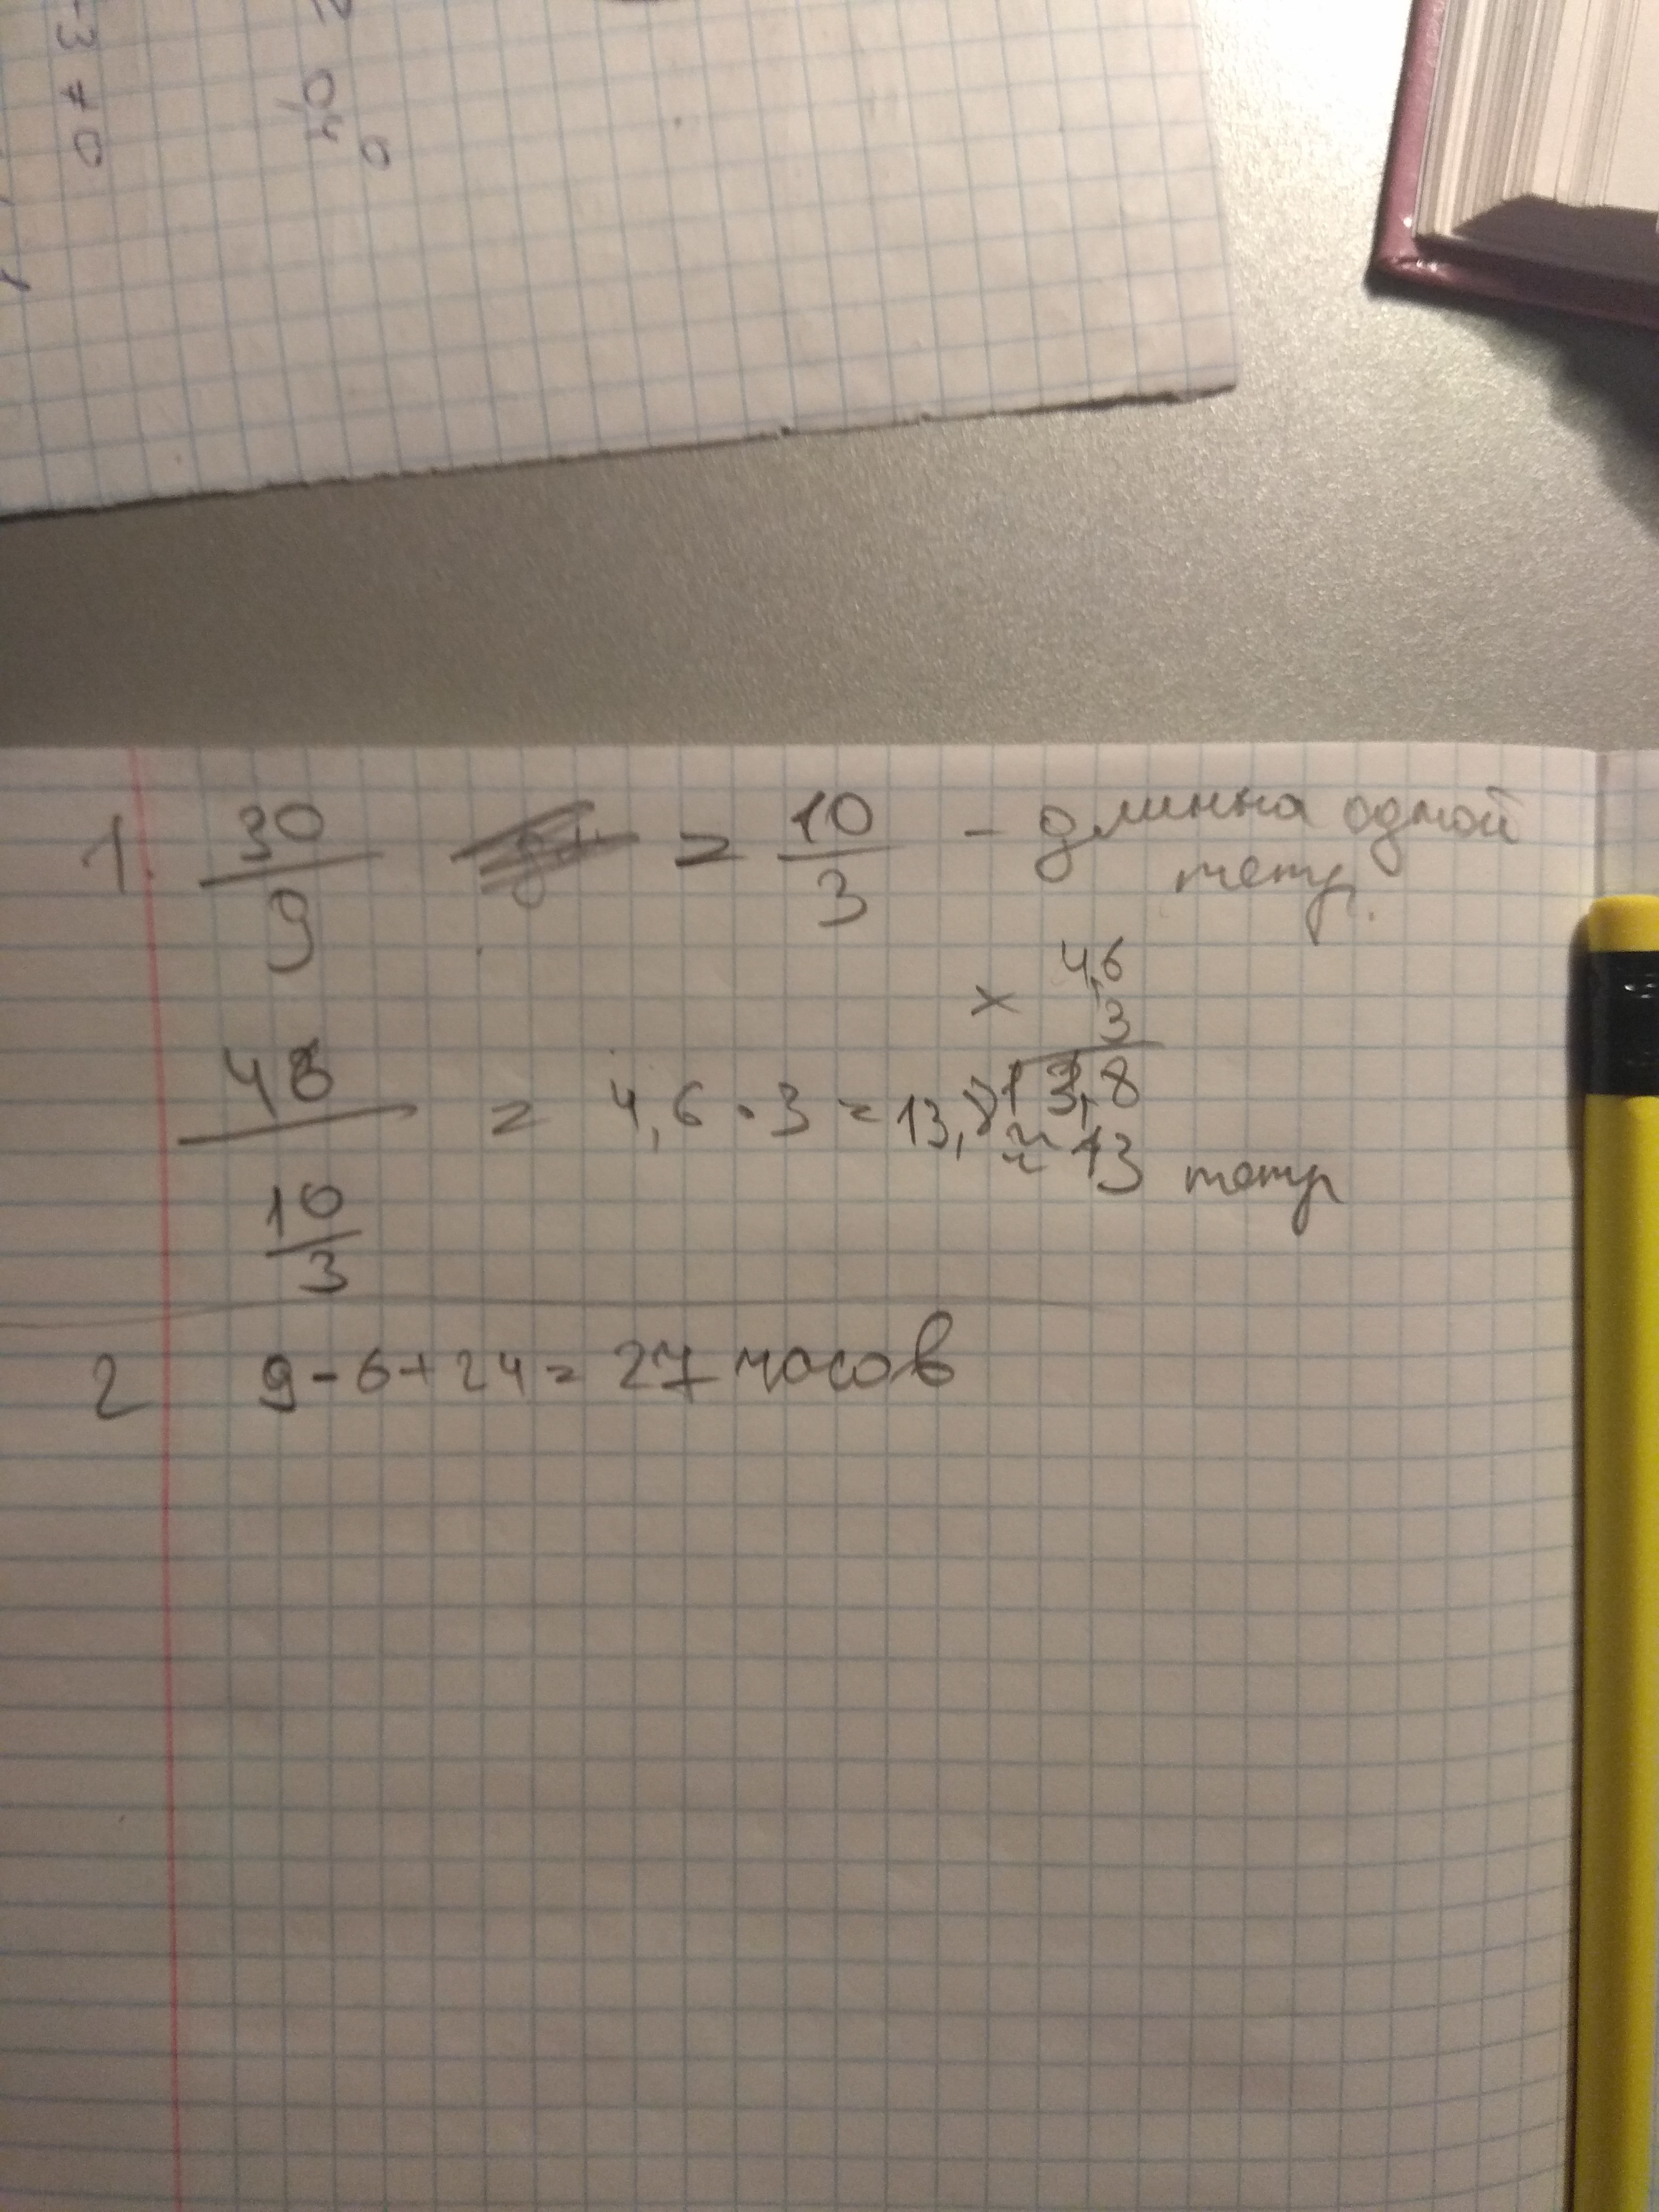 -3 ≠ 0
0,4
0
1. 30/9 = 10/3 - длинна одной
тетр.
4,6
× 3
13,8
46 / (10/3) = 4,6 · 3 = 13,8
≈ 13 тетр
2 9-6+24= 27 часов